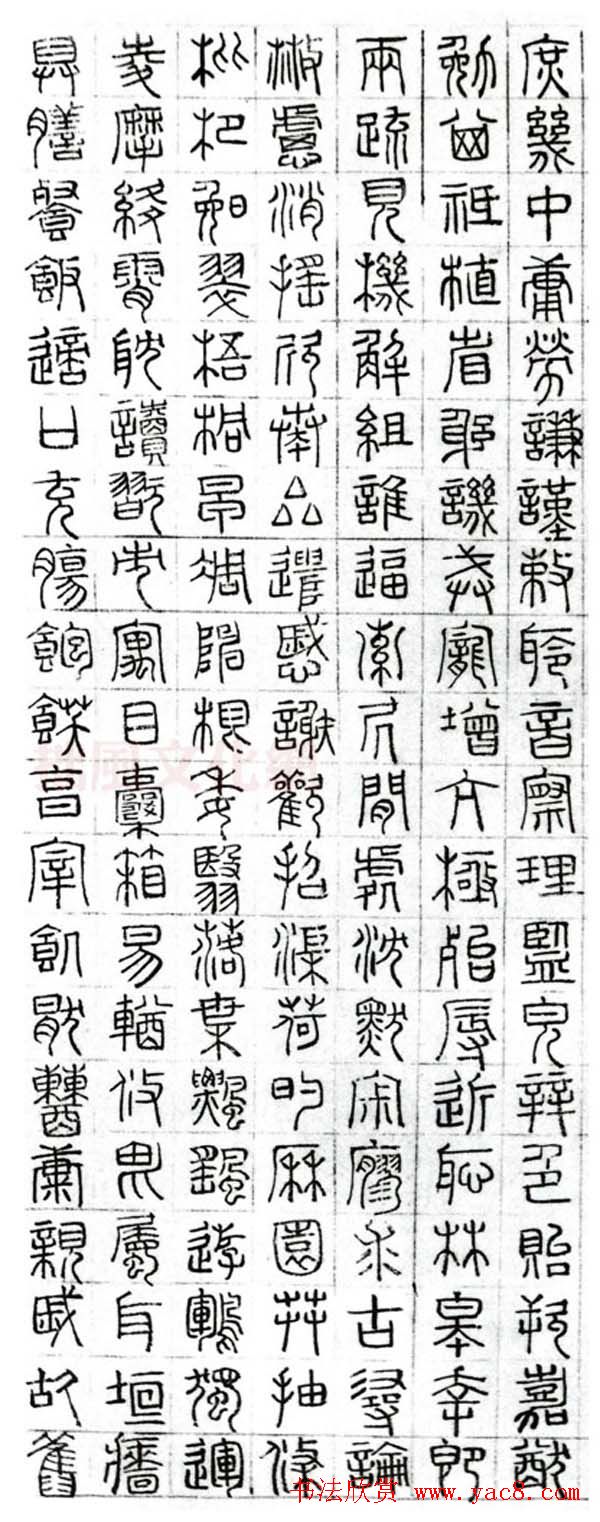 庶幾中庸勞謙謹敕聆音察理監皃辯色貽厥嘉猷
勉其祗植省躬譏誡寵增抗極殆辱近恥林皋幸即
兩疏見機解組誰逼索居閒處沈默寂寥求古尋論
散慮逍遙欣奏累遣慼謝歡招渠荷的歷園莽抽條
枇杷晚翠梧桐早凋陳根委翳落葉飄颻遊鵾獨運
凌摩絳霄耽讀翫市寓目囊箱易輶攸畏屬耳垣牆
具膳餐飯適口充腸飽飫亯宰飢猒糟糠親戚故舊
书法欣赏 www.yac8.com